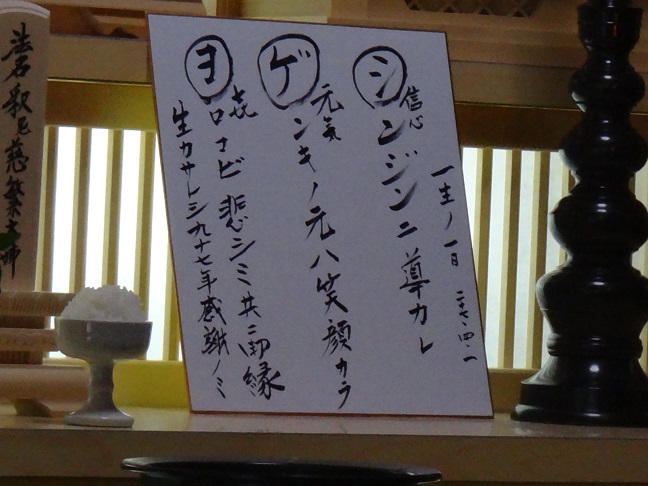 一生ノ一日 二七・四・一
信心
シンジンニ導カレ
元氣
ゲンキノ元ハ笑顔カラ
㐂
ヨロコビ悲シミ共ニ御縁
生カサレシ九十七年感謝ノミ
法名釈尼慈繁